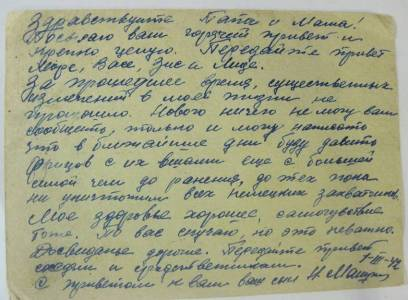 Здравствуйте Папа и Мама!
Посылаю вам горячий привет и
крепко целую. Передайте привет
Васе, Зисе и Лиде.
За прошедшее время, существенных
изменений в моей жизни не
произошло. Нового ничего не могу вам
сообщить, только и могу написать
что в ближайшие дни буду давить
фрицов с их вшами еще с большей
силой чем до ранения, до тех пока
не уничтожим всех немецких захватчиков.
Мое здоровье хорошее, самочувствие
тоже. По вас скучаю, но это неважно.
Досвиданье дорогие. Передайте привет
соседям и родственникам.
С приветом к вам ваш сын